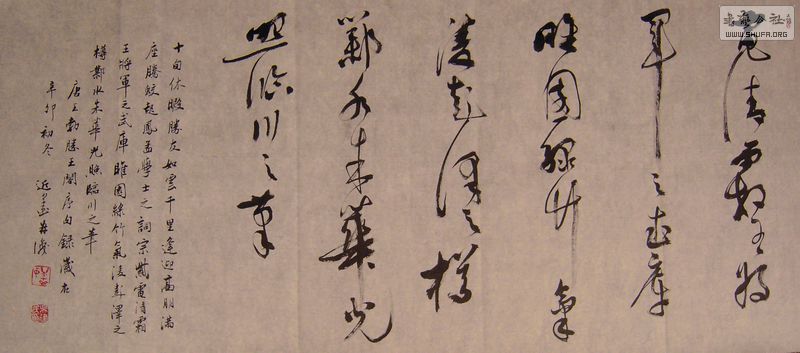 書藝公社
WWW.SHUFA.ORG
電清霜王將
軍之武庫
睢園綠竹氣
凌彭澤之樽
鄴水朱華光
照臨川之筆
十旬休暇勝友如雲千里逢迎高朋滿
座騰蛟起鳳孟學士之詞宗紫電清霜
王將軍之武庫睢園綠竹氣凌彭澤之
樽鄴水朱華光照臨川之筆
唐王勃滕王閣序句錄歲在
辛卯初冬